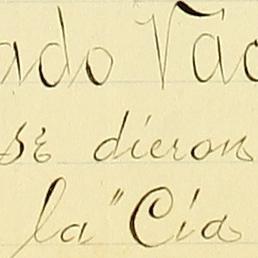 ado Vac
se dieron
la "Cía